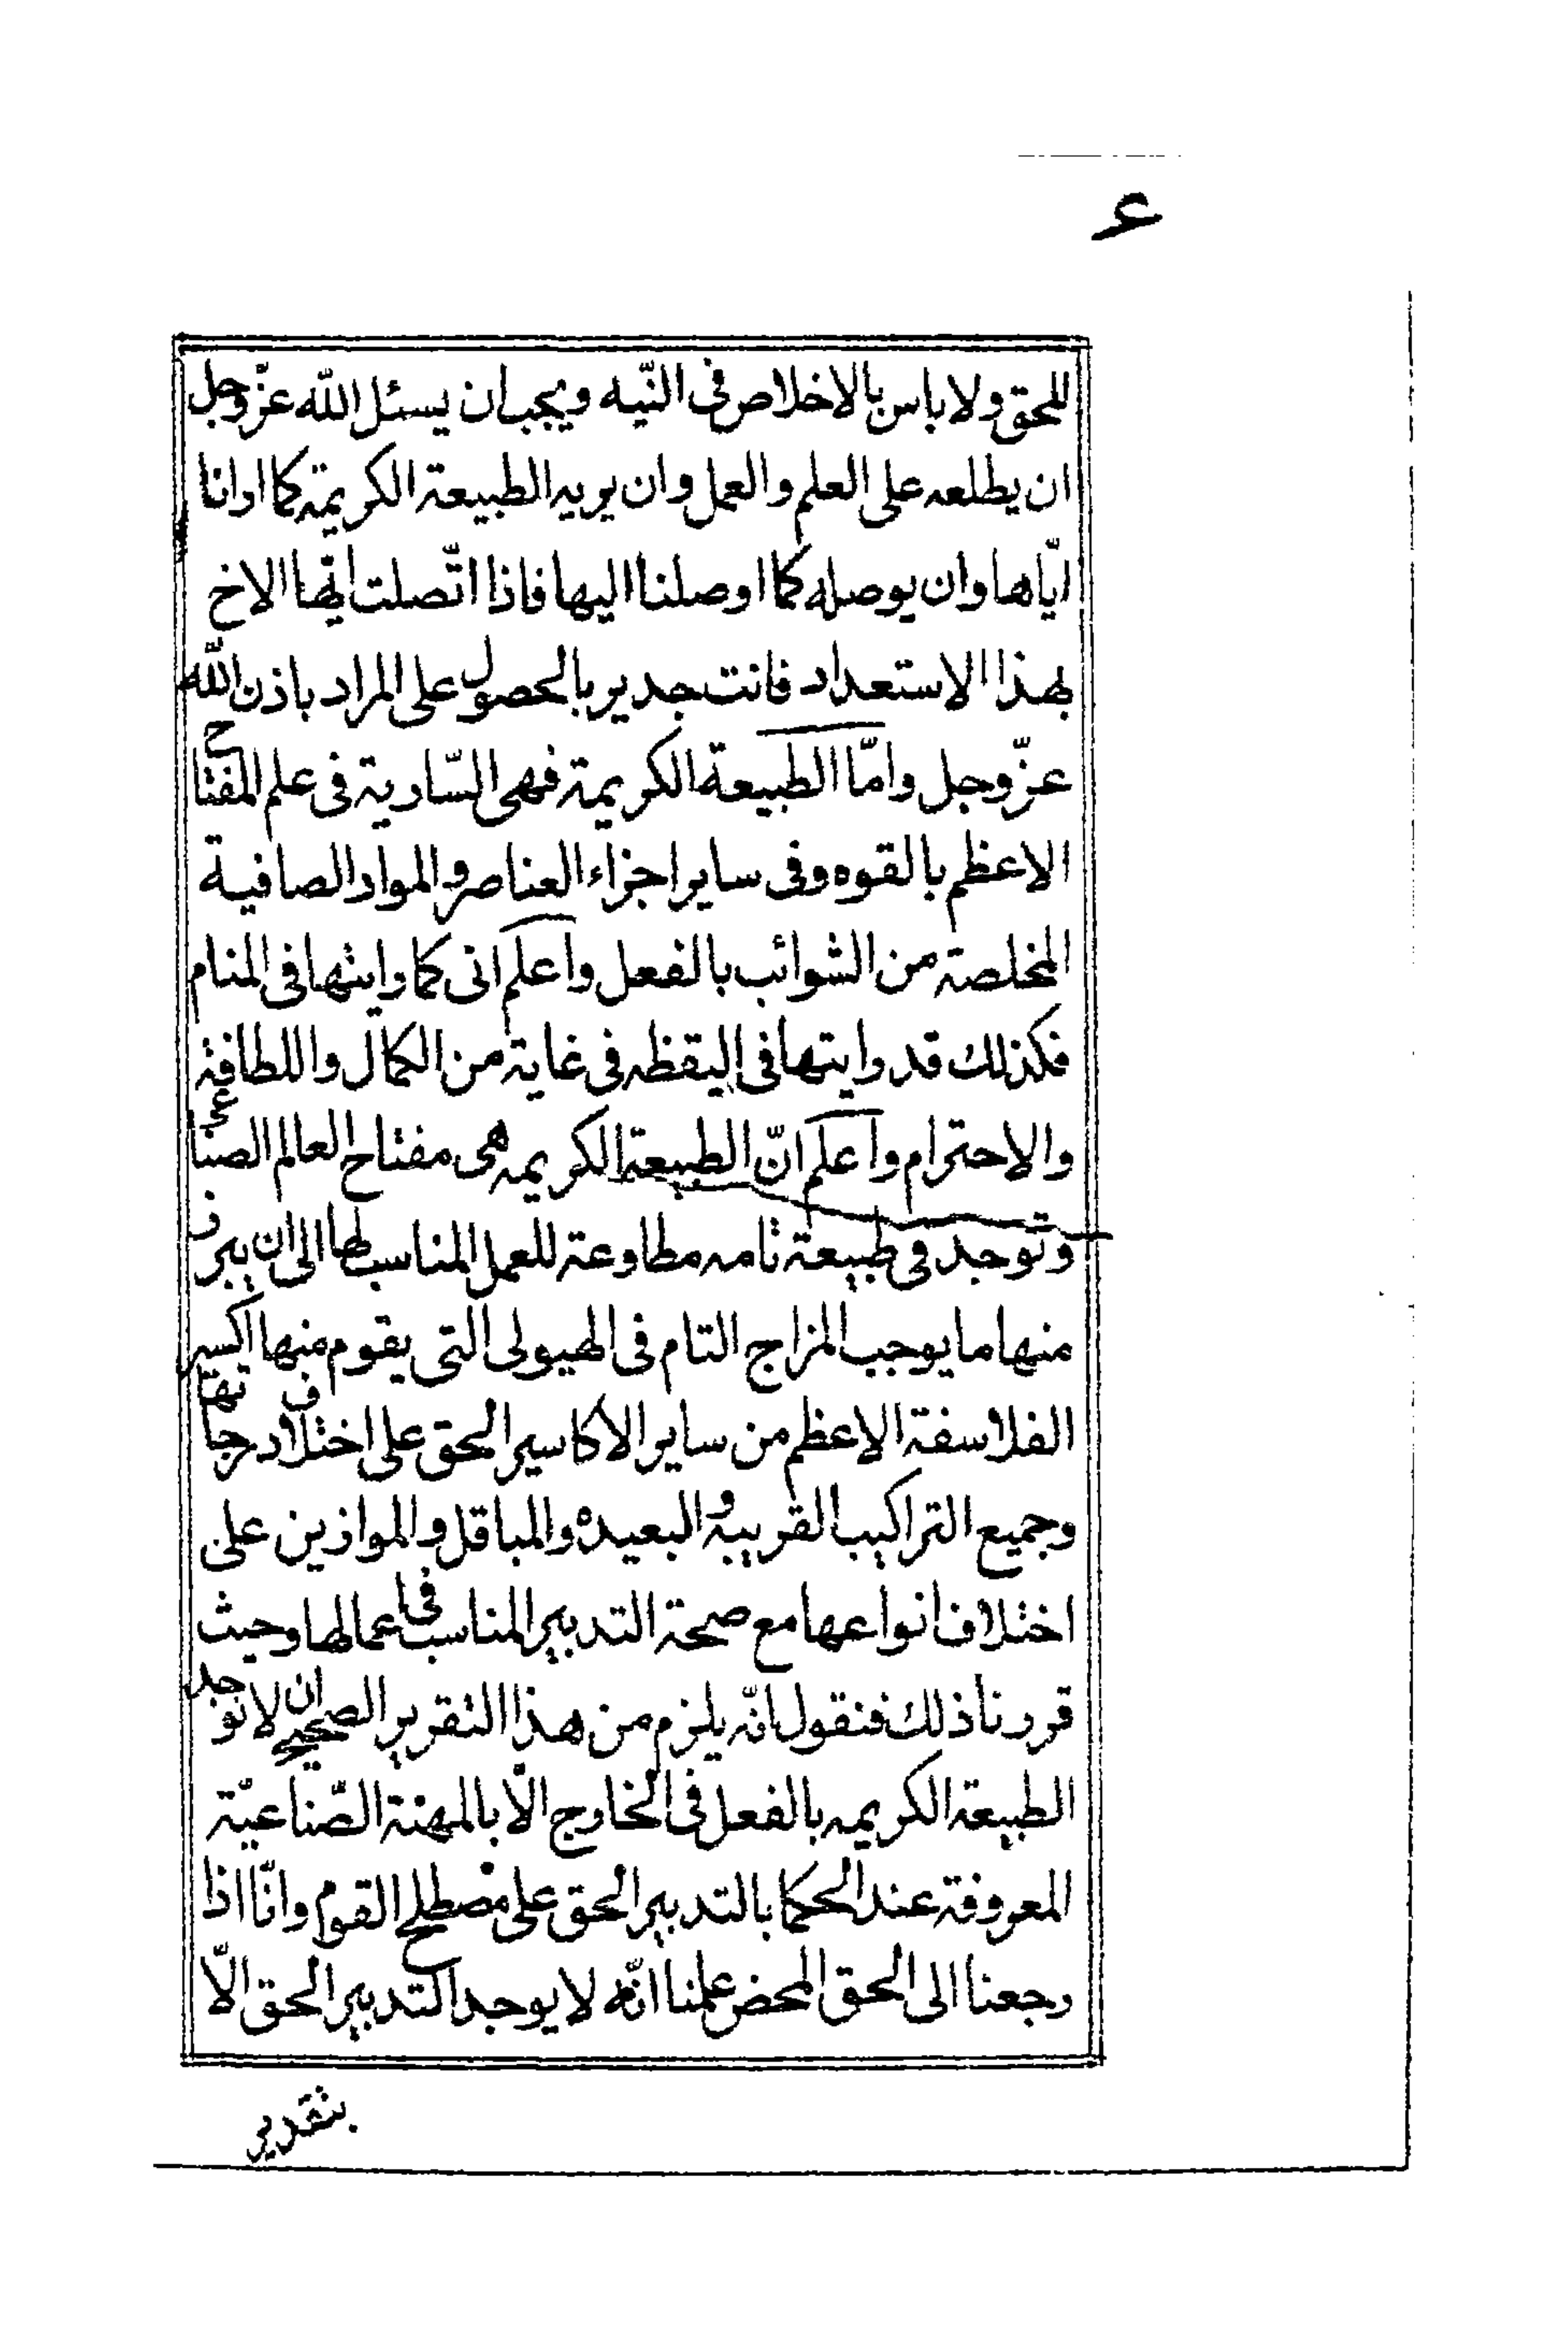 ٤
للحق ولا باس بالاخلاص فى النّيه ويجب ان يسئل اللّه عزّ وجل
ان يطلعه على العلم والعمل وان يريه الطبيعة الكريمة كما ارانا
ايّاها وان يوصله كما اوصلنا اليها فاذا اتّصلت ايّها الاخ
بهذا الاستعداد فانت جدير بالحصول على المراد باذن اللّه
عزّ وجل وامّا الطبيعة الكريمة فهى السّارية فى علم المفتاح
الاعظم بالقوه وفى ساير اجزاء العناصر والمواد الصافية
المخلصة من الشوائب بالفعل واعلم انى كما رايتها فى المنام
فكذلك قد رايتها فى اليقظه فى غاية من الكمال واللطافة
والاحترام واعلم انّ الطبيعة الكريمه هى مفتاح العالم الصناعى
وتوجد فى طبيعة تامه مطاوعة للعمل المناسب لها الى ان يبرز
منها ما يوجب المزاج التام فى الهيولى التى يقوم منها اكسير
الفلاسفة الاعظم من ساير الاكاسير الحق على اختلاف درجاتها
وجميع التراكيب القريبة والبعيده والمباقل والموازين على
اختلاف انواعها مع صحة التدبير المناسب فى اعمالها وحيث
قررنا ذلك فنقول انّه يلزم من هذا التقرير الصحيح ان لا توجد
الطبيعة الكريمه بالفعل فى الخارج الّا بالمهنة الصّناعيّة
المعروفة عند الحكما بالتدبير الحق على مصطلح القوم وانّا اذا
رجعنا الى الحق المحض علمنا انّه لا يوجد التدبير الحق الّا
بتقدير